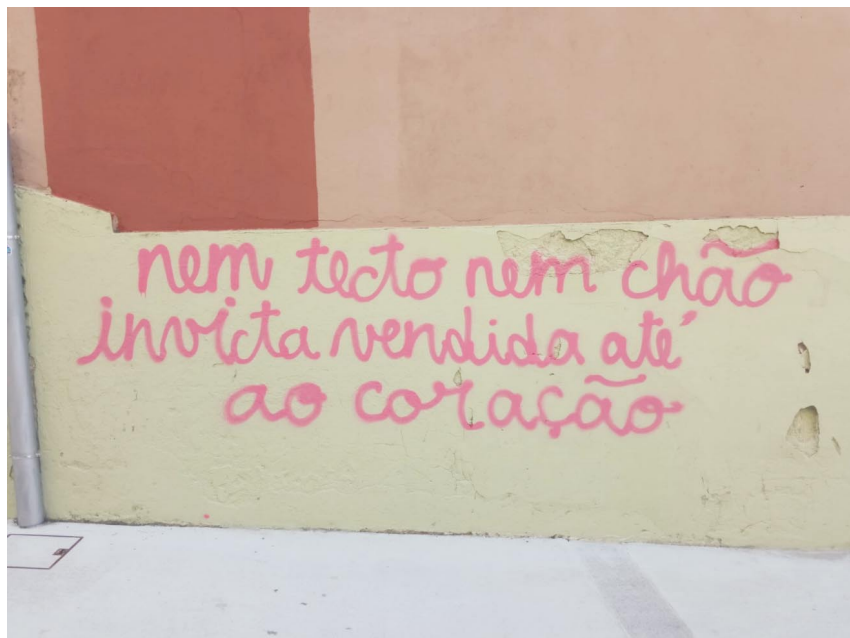 nem tecto nem chão
invicta vendida até
ao coração